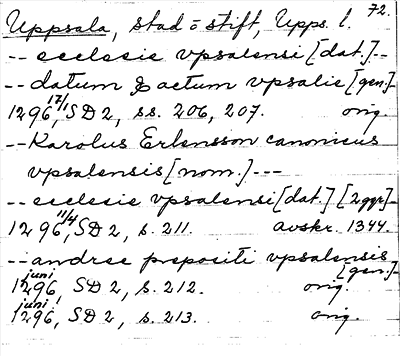 72.
Uppsala, stad o stift, Upps. l.
-- ecclesie vpsalensi [dat.]--
-- datum & actum vpsalie [gen.]-
1296 17/1, SD 2, ss. 206, 207. orig.
-- Karolus Erlensson canonicus
vpsalensis [nom.] ---
-- ecclesie vpsalensi [dat.] [2ggr]-
1296 11/4, SD 2, s. 211. avskr. 1344.
-- andree prepositi vpsalensis
[gen.]-
juni
1296 SD 2, s. 212. orig.
juni !
1296, SD 2, s. 213. orig.